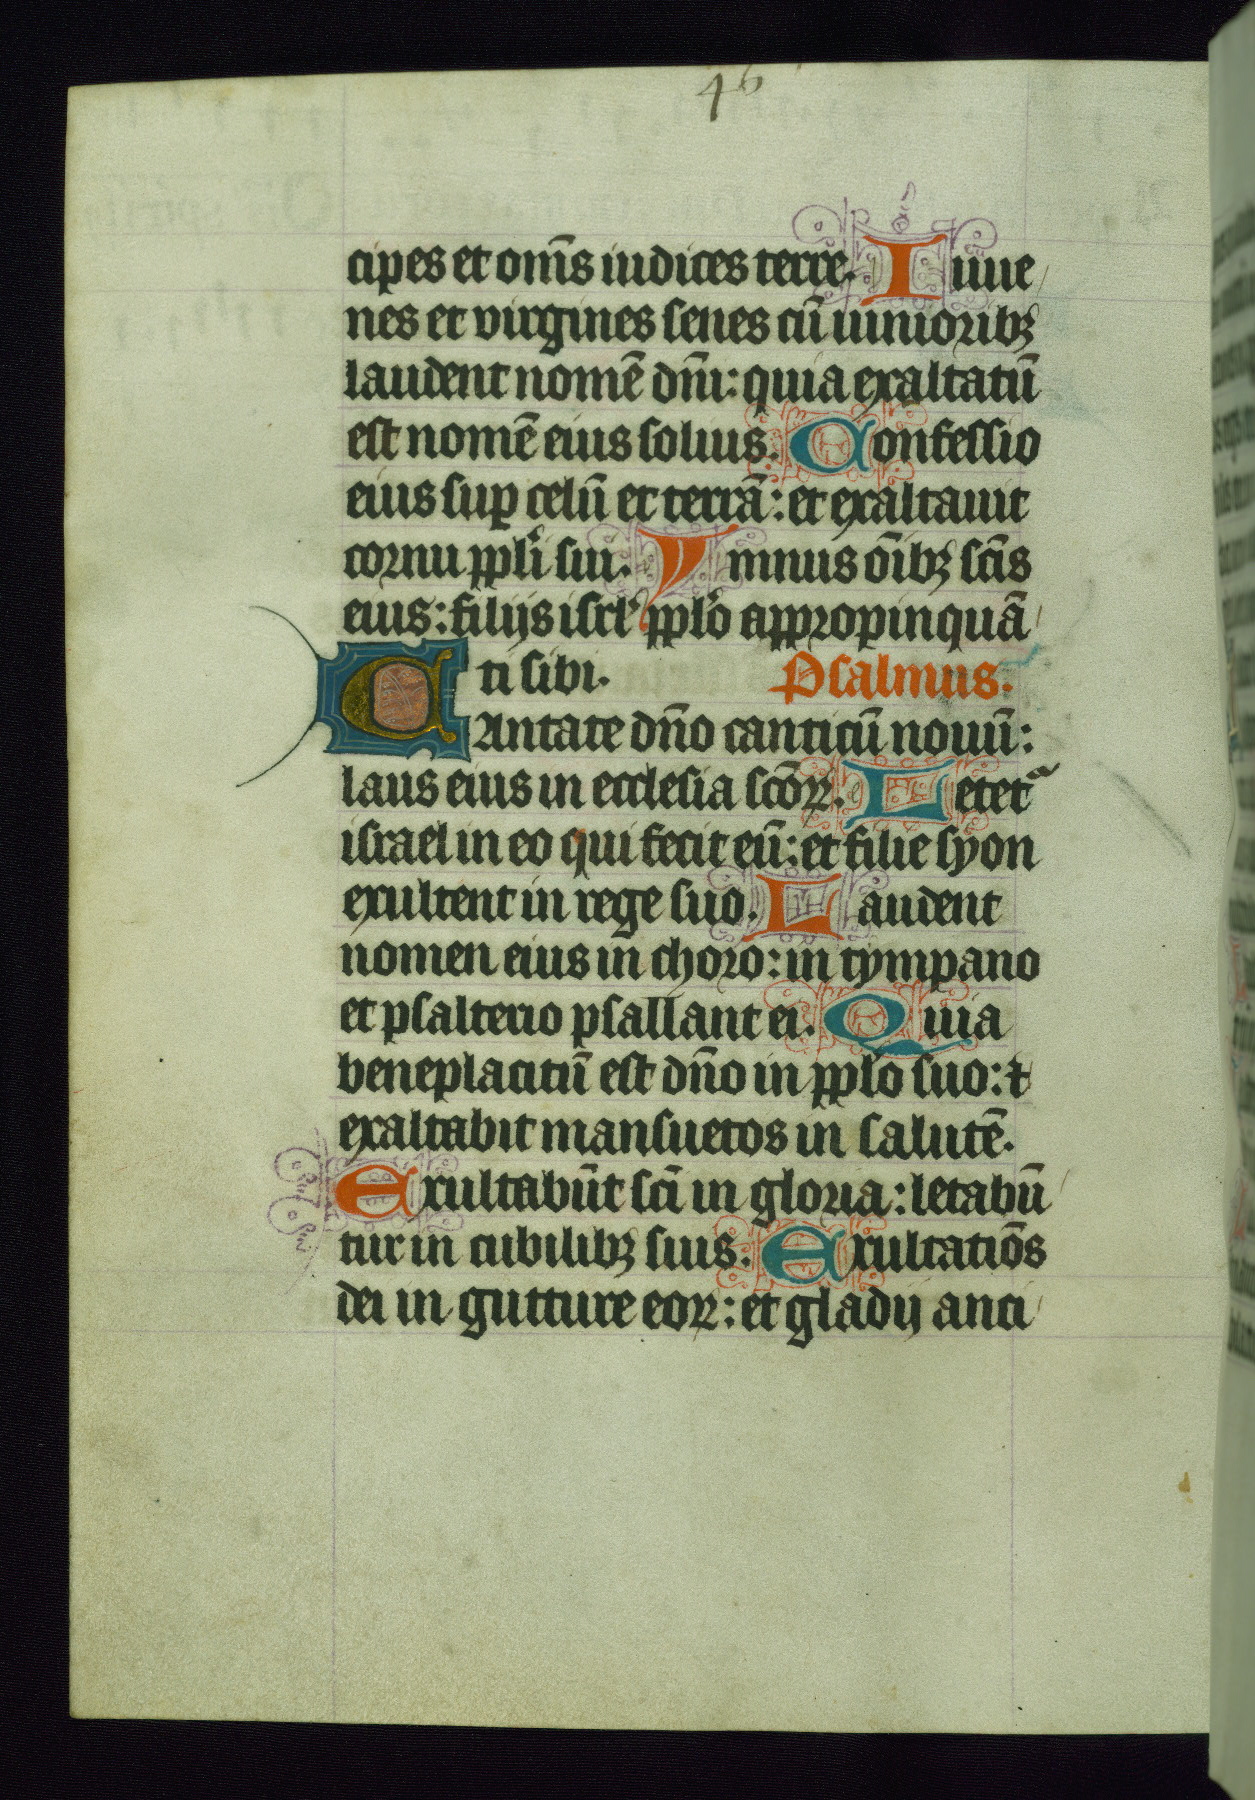 46
cipes et om̄s iudices terre. Iuue
nes et virgines senes cū iunioribꝫ
laudent nomē dn̄i: quia exaltatū
est nomē eius solius. Confessio
eius suꝑ celū et terrā: et exaltauit
cornu ppli̇ sui. Ymnus oībꝫ sc̄is
eius: filijs isrl̓ pplo̓ appropinquā
ti sibi. Psalmus.
CAntate dn̄o canticū nouū:
laus eius in ecclesia sc̄oꝝ. Letet᷑
israel in eo qui fecit eū: et filie syon
exultent in rege suo. Laudent
nomen eius in choro: in tympano
et psalterio psallant ei. Quia
beneplacitū est dn̄o in pplo̓ suo: ⁊
exaltabit mansuetos in salutē.
Exultabūt sc̄i in gloria: letabū
tur in cubilibꝫ suis. Exultatiōs
dei in gutture eoꝝ: et gladij anci